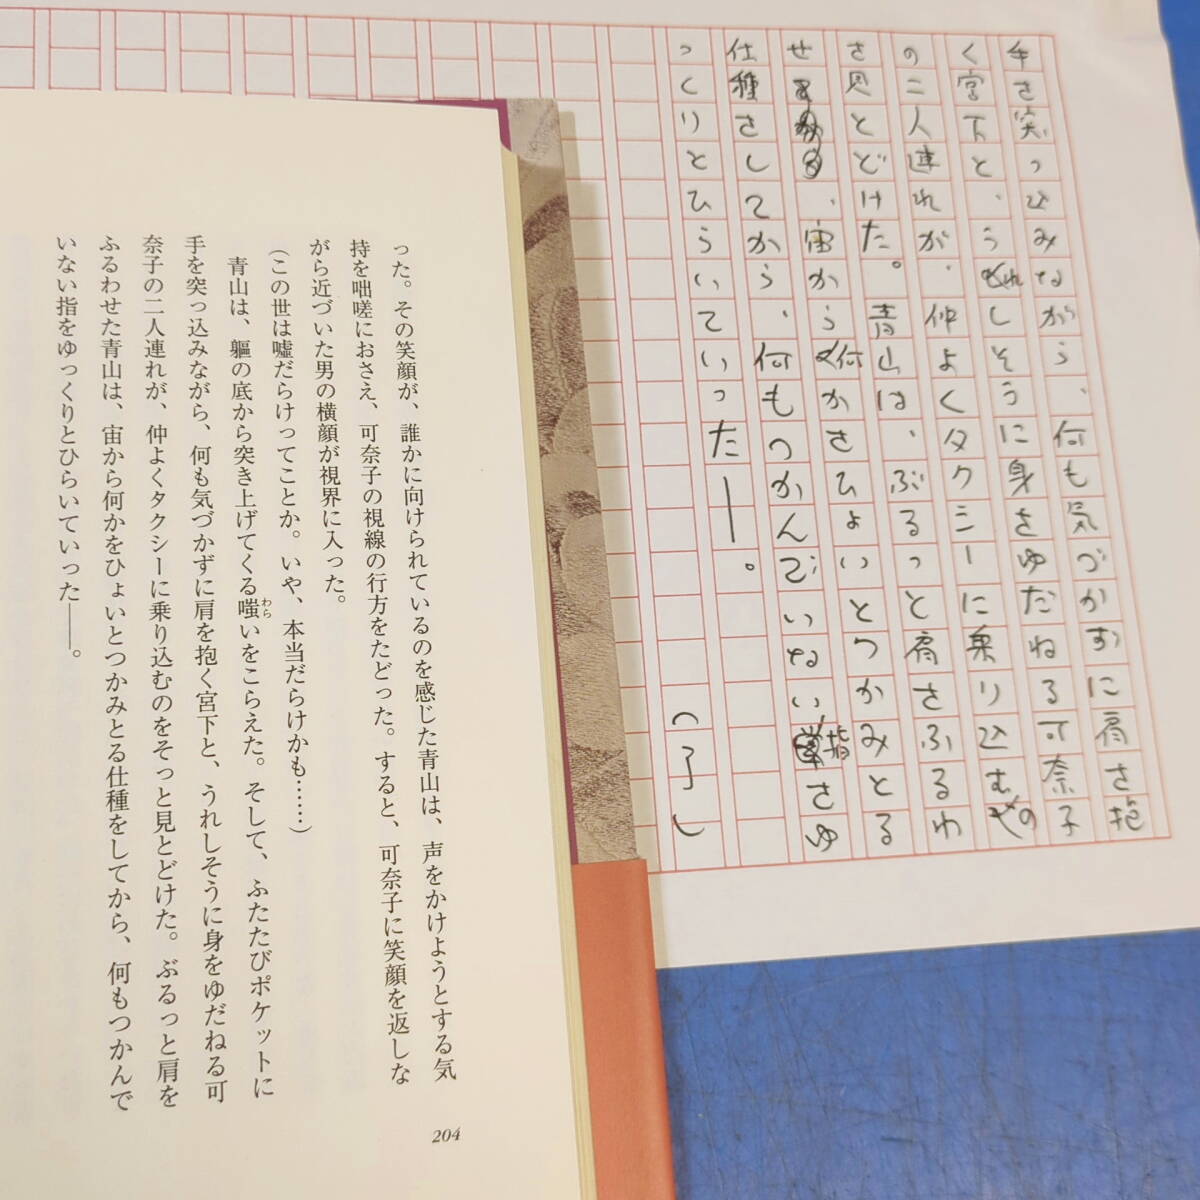 手を突っ込みながら、何も気づかずに肩を抱
く宮下と、うれしそうに身をゆだねる可奈子
の二人連れが、仲よくタクシーに乗り込むの
を見とどけた。青山は、ぶるっと肩をふるわ
せ、宙から何かをひょいとつかみとる
仕種をしてから、何もつかんでいない指をゆ
っくりとひらいていった――。(了)
った。その笑顔が、誰かに向けられているのを感じた青山は、声をかけようとする気
持を咄嗟におさえ、可奈子の視線の行方をたどった。すると、可奈子に笑顔を返しな
がら近づいた男の横顔が視界に入った。
(この世は嘘だらけってことか。いや、本当だらけかも……)
青山は、軀の底から突き上げてくる嗤いをこらえた。そして、ふたたびポケットに
わら
手を突っ込みながら、何も気づかずに肩を抱く宮下と、うれしそうに身をゆだねる可
奈子の二人連れが、仲よくタクシーに乗り込むのをそっと見とどけた。ぶるっと肩を
ふるわせた青山は、宙から何かをひょいとつかみとる仕種をしてから、何もつかんで
いない指をゆっくりとひらいていった――。
204